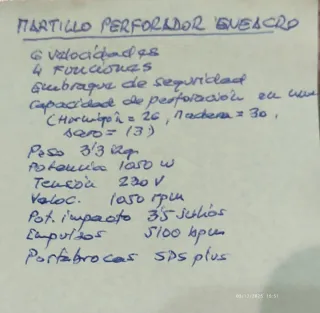 MARTILLO PERFORADOR ENEACRO
6 velocidades
4 Funciones
Embrague de seguridad
Capacidad de perforación en mm
(Hormigón = 26, Madera = 30,
acero = 13)
Peso 3'3 kgr
Potencia 1050 w
Tensión 230 V
Veloc. 1050 rpm
Pot. impacto 3'5 julios
Impulsos 5100 bpm
Portabrocas SDS plus